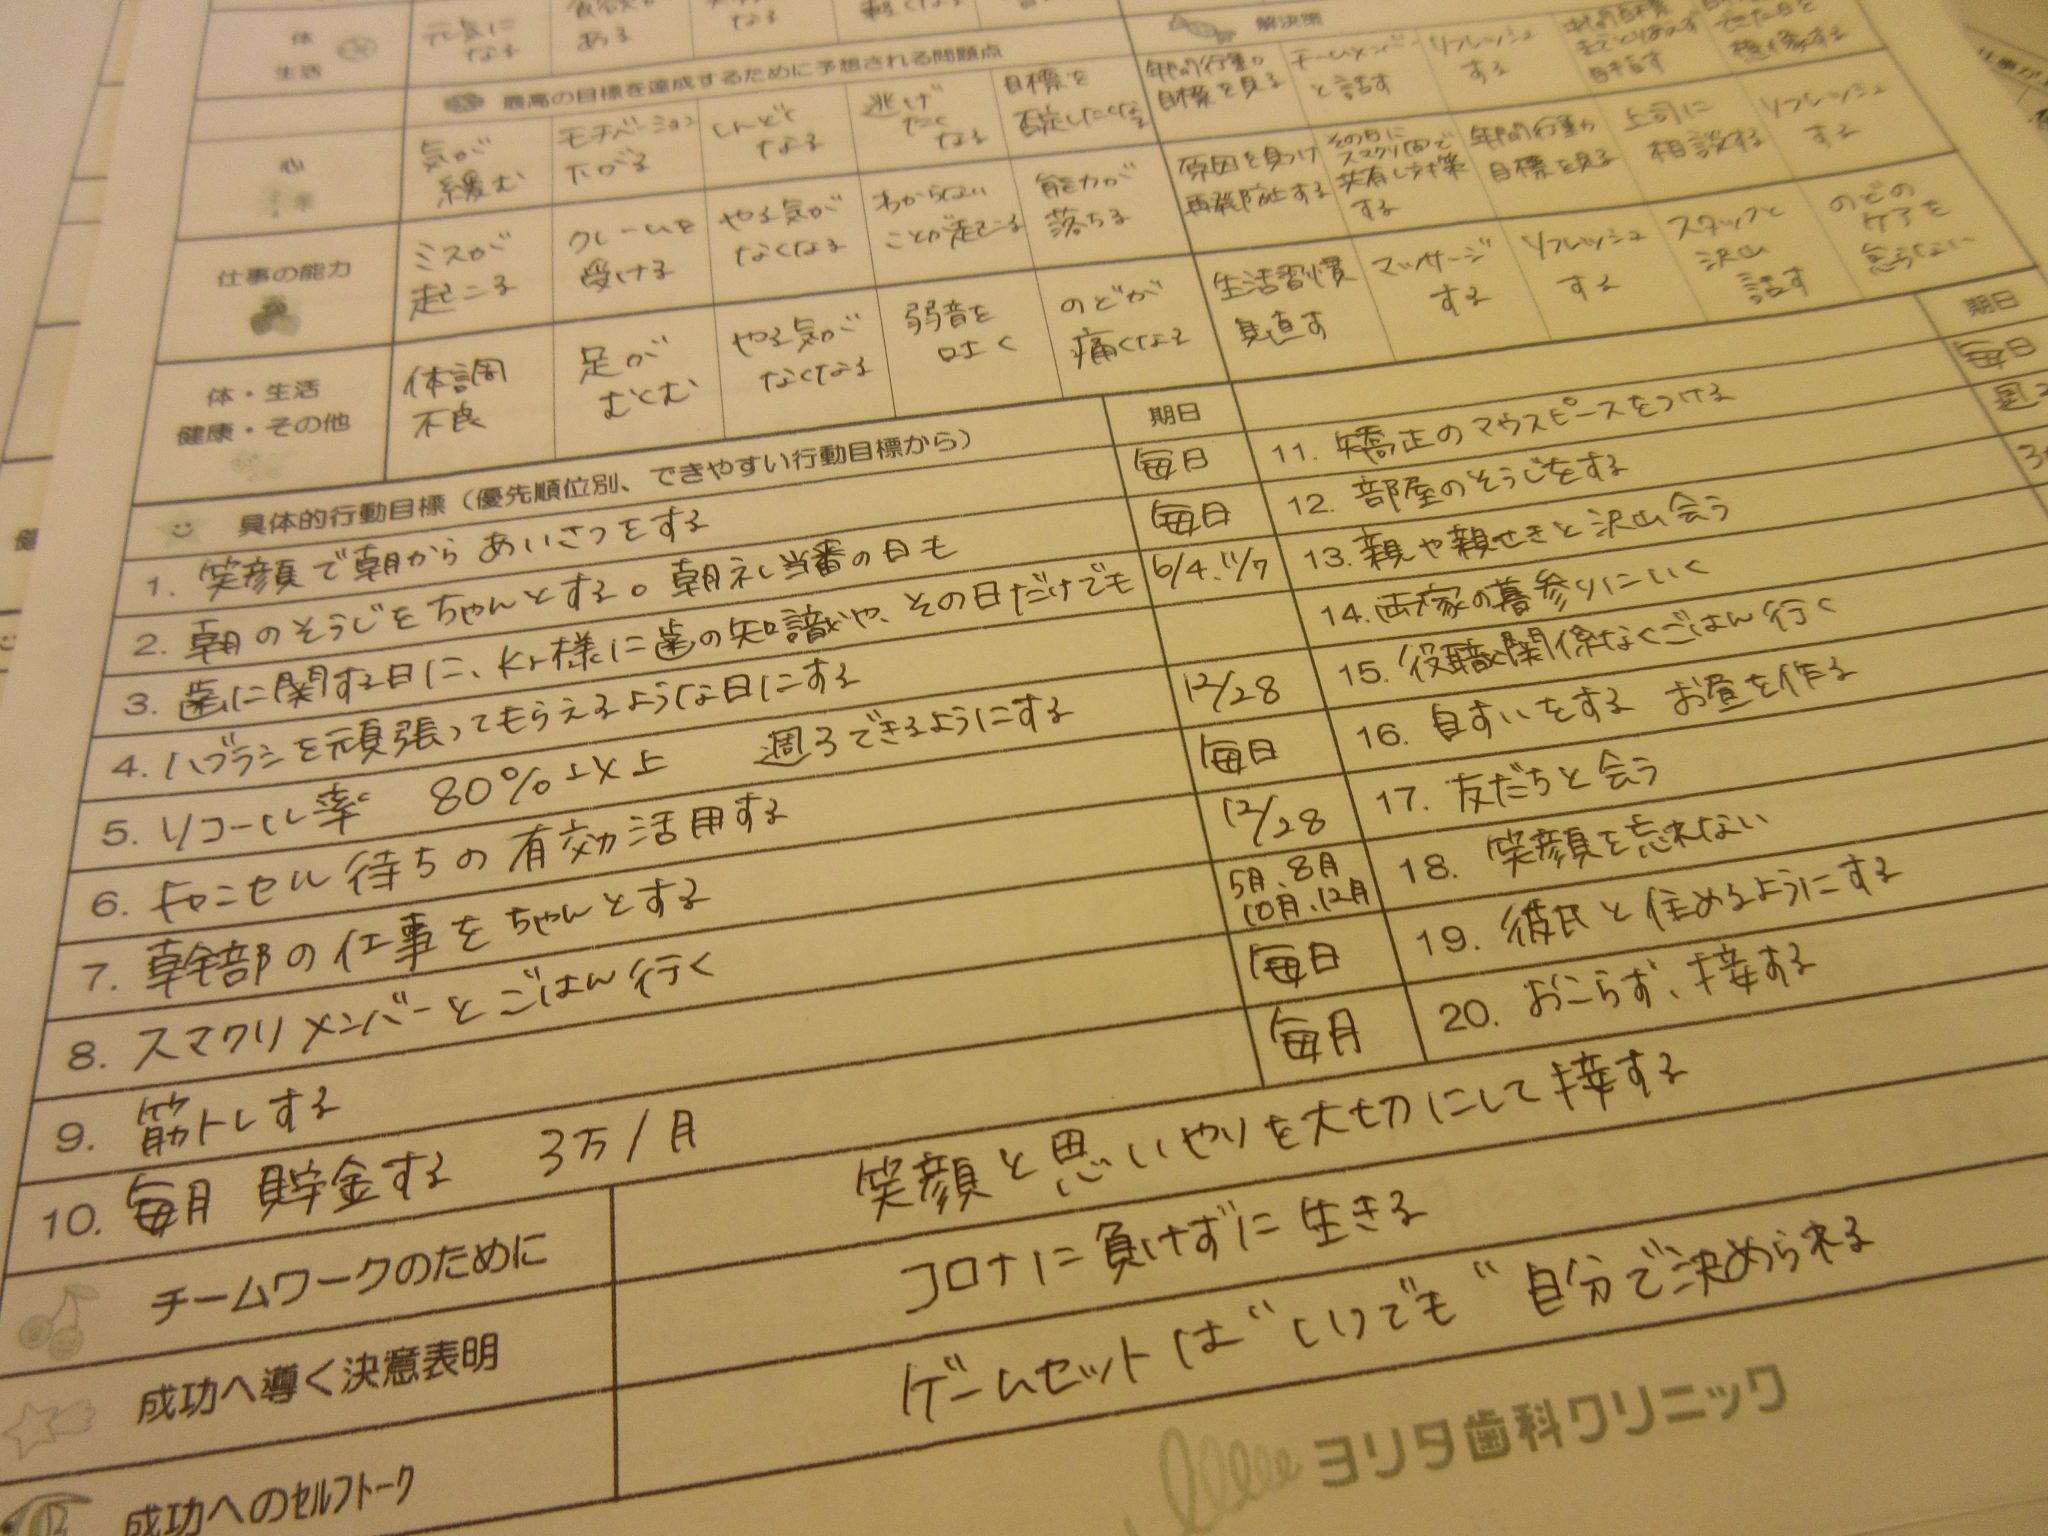 体
生活
元気に
なる
ある
なる
軽くなる
解決策
最高の目標を達成するために予想される問題点
年間行動
目標を見る
チームメンバー
と話す
リフレッシュ
する
想像する
心
気が
緩む
モチベーション
下がる
しんどく
なる
逃げ
たく
なる
目標を
否定したくなる
原因を見つけ
再発防止する
その日に
スマクリ内で
共有し対策
する
年間行動
目標を見る
上司に
相談する
リフレッシュ
する
仕事の能力
ミスが
起こる
クレームを
受ける
やる気が
なくなる
わからない
ことが起こる
能力が
落ちる
生活習慣
見直す
マッサージ
する
リフレッシュ
する
スタッフと
沢山
話す
のどの
ケアを
怠らない
体・生活
健康・その他
体調
不良
足が
むくむ
やる気が
なくなる
弱音を
吐く
のどが
痛くなる
具体的行動目標(優先順位別、できやすい行動目標から)
期日
期日
1. 笑顔で朝からあいさつをする
毎日
11. 矯正のマウスピースをつける
毎日
2. 朝のそうじをちゃんとする。朝礼当番の日も
毎日
12. 部屋のそうじをする
3. 歯に関する日に、Kr様に歯の知識や、その日だけでも
6/4、11/7
13. 親や親せきと沢山会う
4. ハブラシを頑張ってもらえるような日にする
14. 両家の墓参りにいく
5. リコール率 80%以上 週3できるようにする
12/28
15. 役職関係なくごはん行く
6. キャンセル待ちの有効活用する
毎日
16. 自すいをする お昼を作る
7. 幹部の仕事をちゃんとする
12/28
17. 友だちと会う
8. スマクリメンバーとごはん行く
5月、8月
10月、12月
18. 笑顔を忘れない
9. 筋トレする
毎日
19. 彼氏と住めるようにする
10. 毎月 貯金する 3万/月
毎月
20. おこらず、接する
チームワークのために
笑顔と思いやりを大切にして接する
成功へ導く決意表明
コロナに負けずに生きる
成功へのセルフトーク
ゲームセットは"いつでも"自分で決められる
ヨリタ歯科クリニック